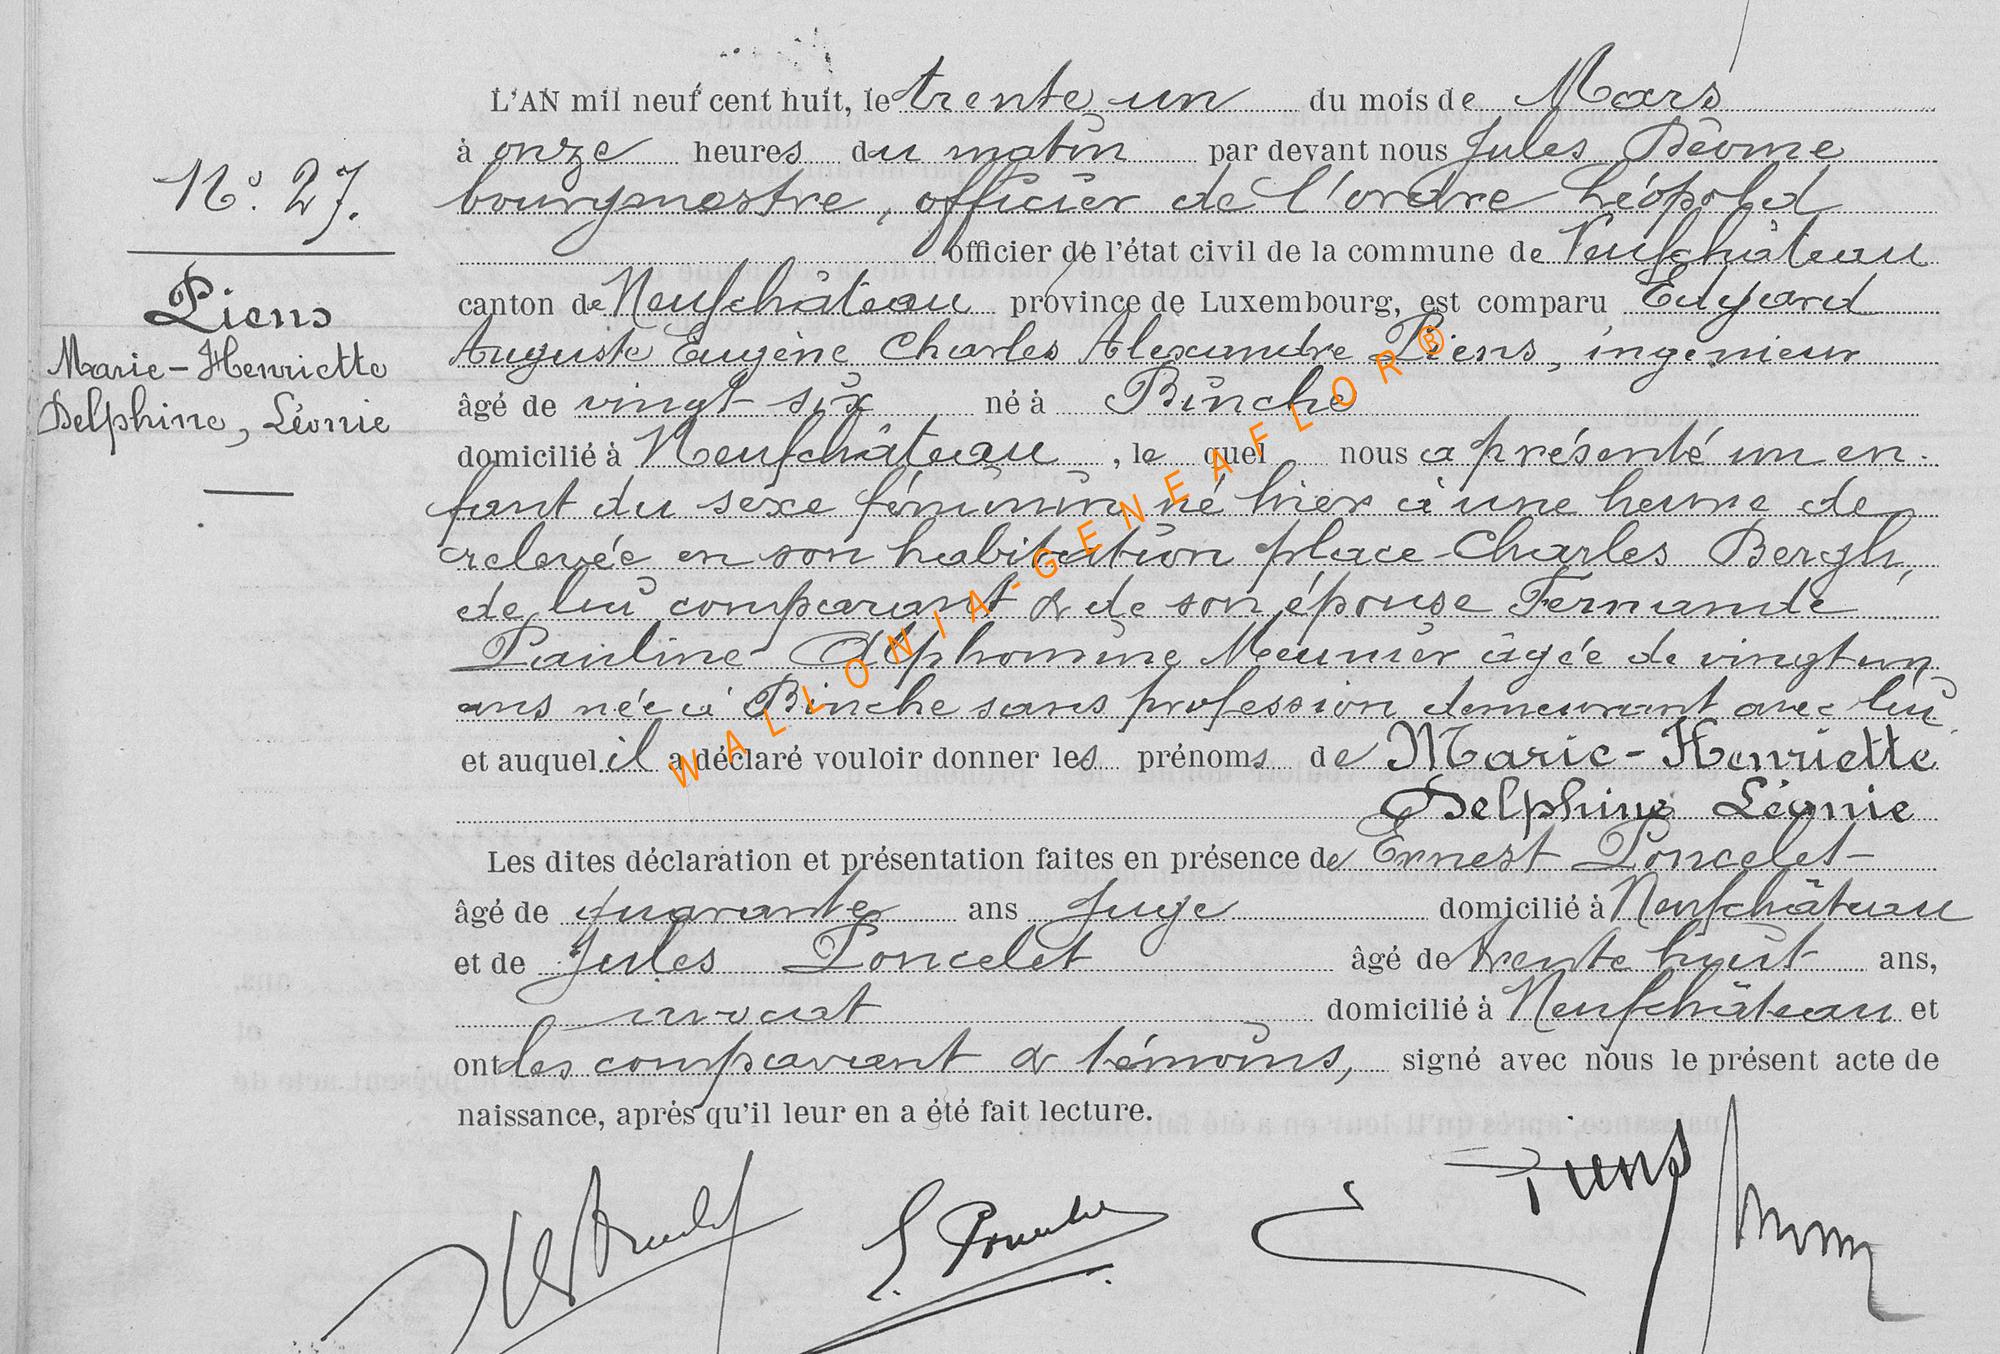 L'AN mil neuf cent huit, le trente un du mois de Mars
à onze heures du matin par devant nous Jules
bourgmestre, officier de l'ordre Léopold
officier de l'état civil de la commune de Neufchâteau
canton de Neufchâteau province de Luxembourg, est comparu
Auguste Eugène Charles Alexandre Piens, ingénieur
âgé de vingt six né à Binche
domicilié à Neufchâteau, le quel nous a présenté un en-
fant du sexe féminin né hier à une heure de
relevée en son habitation place Charles Bergh,
de lui comparant & de son épouse Fernande
Pauline Alphonsine Meunier âgée de vingt un
ans née à Binche sans profession demeurant avec lui
et auquel il a déclaré vouloir donner les prénoms de Marie-Henriette
Delphine Léonie
Les dites déclaration et présentation faites en présence de Ernest Poncelet
âgé de quarante ans Juge domicilié à Neufchâteau
et de Jules Poncelet âgé de trente huit ans,
avocat domicilié à Neufchâteau et
ont les comparant & témoins, signé avec nous le présent acte de
naissance, après qu'il leur en a été fait lecture.
N° 27.
Piens
Marie-Henriette
Delphine, Léonie
E. Poncelet
Piens
WALLONIA-GENEAFLOR®